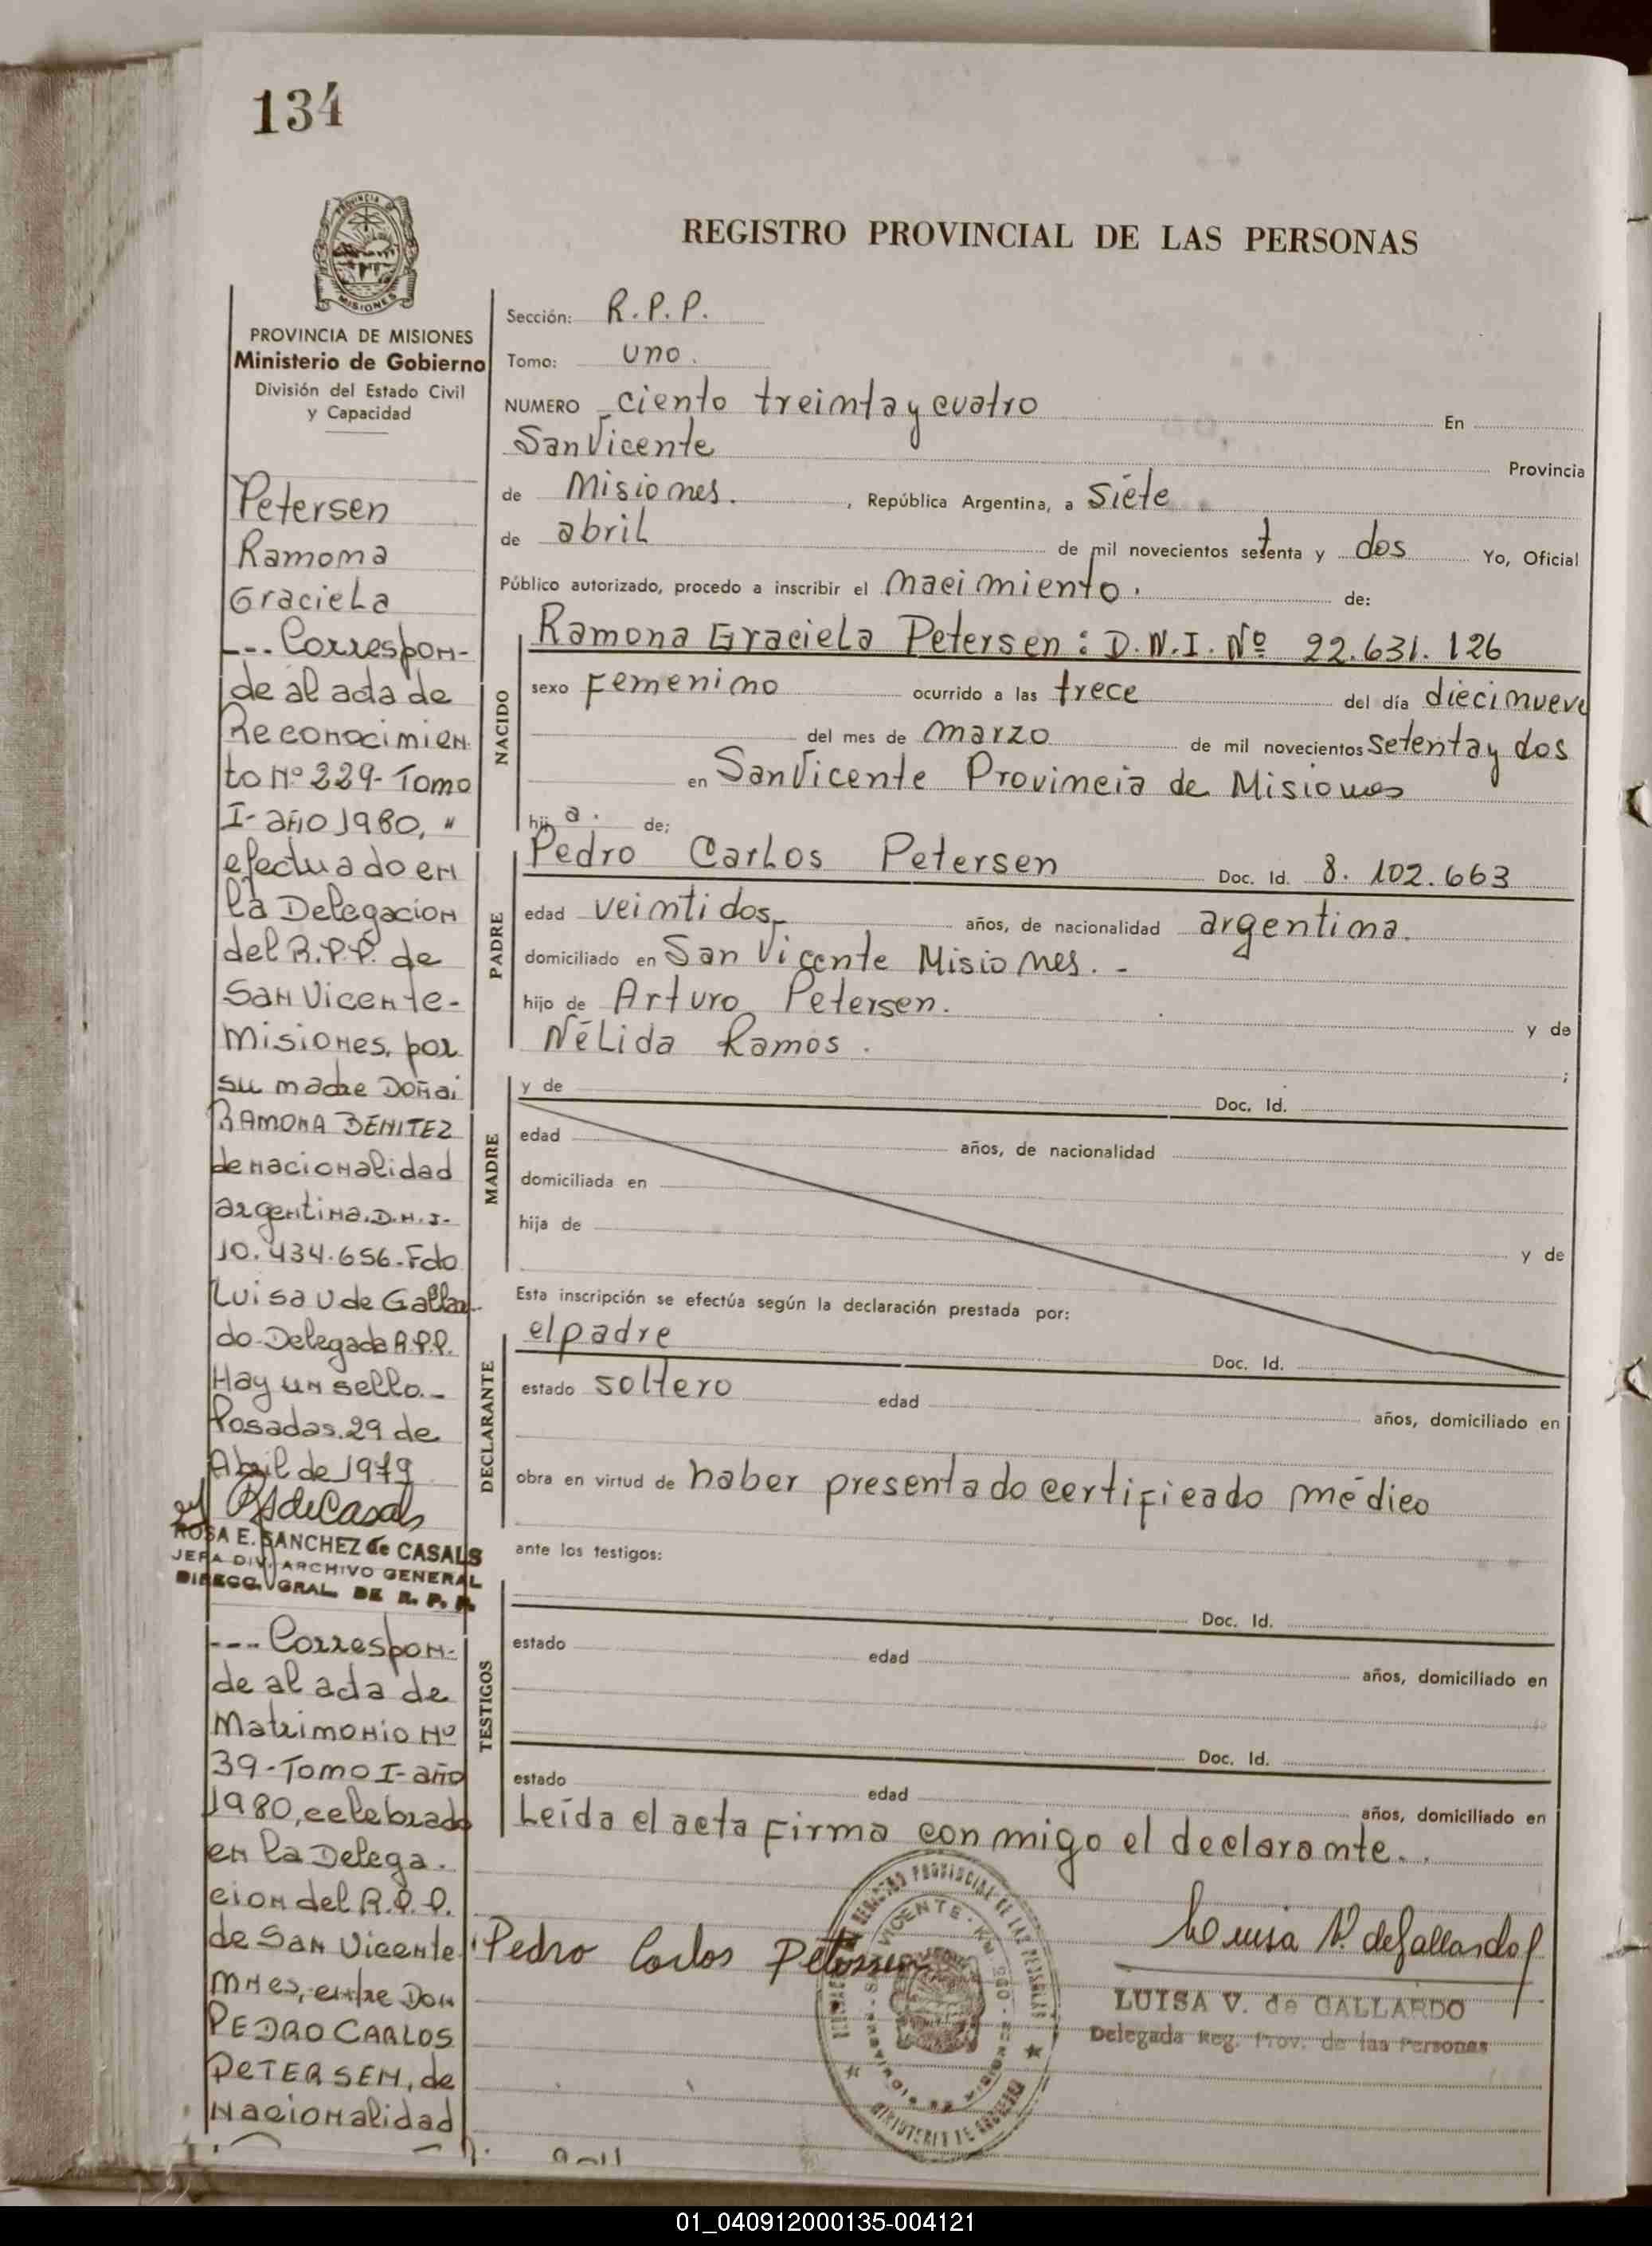 134
PROVINCIA DE MISIONES
REGISTRO PROVINCIAL DE LAS PERSONAS
PROVINCIA DE MISIONES
Ministerio de Gobierno
División del Estado Civil
y Capacidad
Petersen
Ramona
Graciela
--- Correspon-
de al acta de
Reconocimien
to Nº 229- Tomo
I- año 1980, "
efectuado en
la Delegacion
del R.P.P. de
San Vicente-
Misiones, por
su madre Doña
RAMONA BENITEZ
de nacionalidad
argentina. D.N.I.-
10.434.656. Fdo
Luisa V de Gallar-
do- Delegada R.P.P.
Hay un sello.-
Posadas. 29 de
Abril de 1979
ROSA E. SANCHEZ de CASALS
JEFA DIV. ARCHIVO GENERAL
DIRECC. GRAL. DE R. P. P.
--- Correspon-
de al acta de
Matrimonio Nº
39- Tomo I- año
1980, celebrado
en la Delega-
cion del R.P.P.
de San Vicente
Mnes, entre Don
PEDRO CARLOS
PETERSEN, de
Nacionalidad
Sección: R.P.P.
Tomo: uno.
NUMERO ciento treinta y cuatro En
San Vicente Provincia
de Misiones. , República Argentina, a Siete
de abril de mil novecientos setenta y dos Yo, Oficial
Público autorizado, procedo a inscribir el nacimiento. de:
NACIDO
Ramona Graciela Petersen: D.N.I. Nº 22.631.126
sexo Femenino ocurrido a las trece del día diecinueve
del mes de marzo de mil novecientos setenta y dos
en San Vicente Provincia de Misiones
hij a. de;
PADRE
Pedro Carlos Petersen Doc. Id. 8.102.663
edad veintidos años, de nacionalidad argentina.
domiciliado en San Vicente Misiones. -
hijo de Arturo Petersen. y de
Nélida Ramos. ;
MADRE
y de Doc. Id.
edad años, de nacionalidad
domiciliada en
hija de y de
Esta inscripción se efectúa según la declaración prestada por:
DECLARANTE
el padre Doc. Id.
estado soltero edad años, domiciliado en
obra en virtud de haber presentado certificado médico
ante los testigos:
TESTIGOS
Doc. Id.
estado edad años, domiciliado en
Doc. Id.
estado edad años, domiciliado en
Leída el acta firma conmigo el declarante.
Pedro Carlos Petersen
Luisa V. de Gallardo
LUISA V. de GALLARDO
Delegada Reg. Prov. de las Personas
01_040912000135-004121